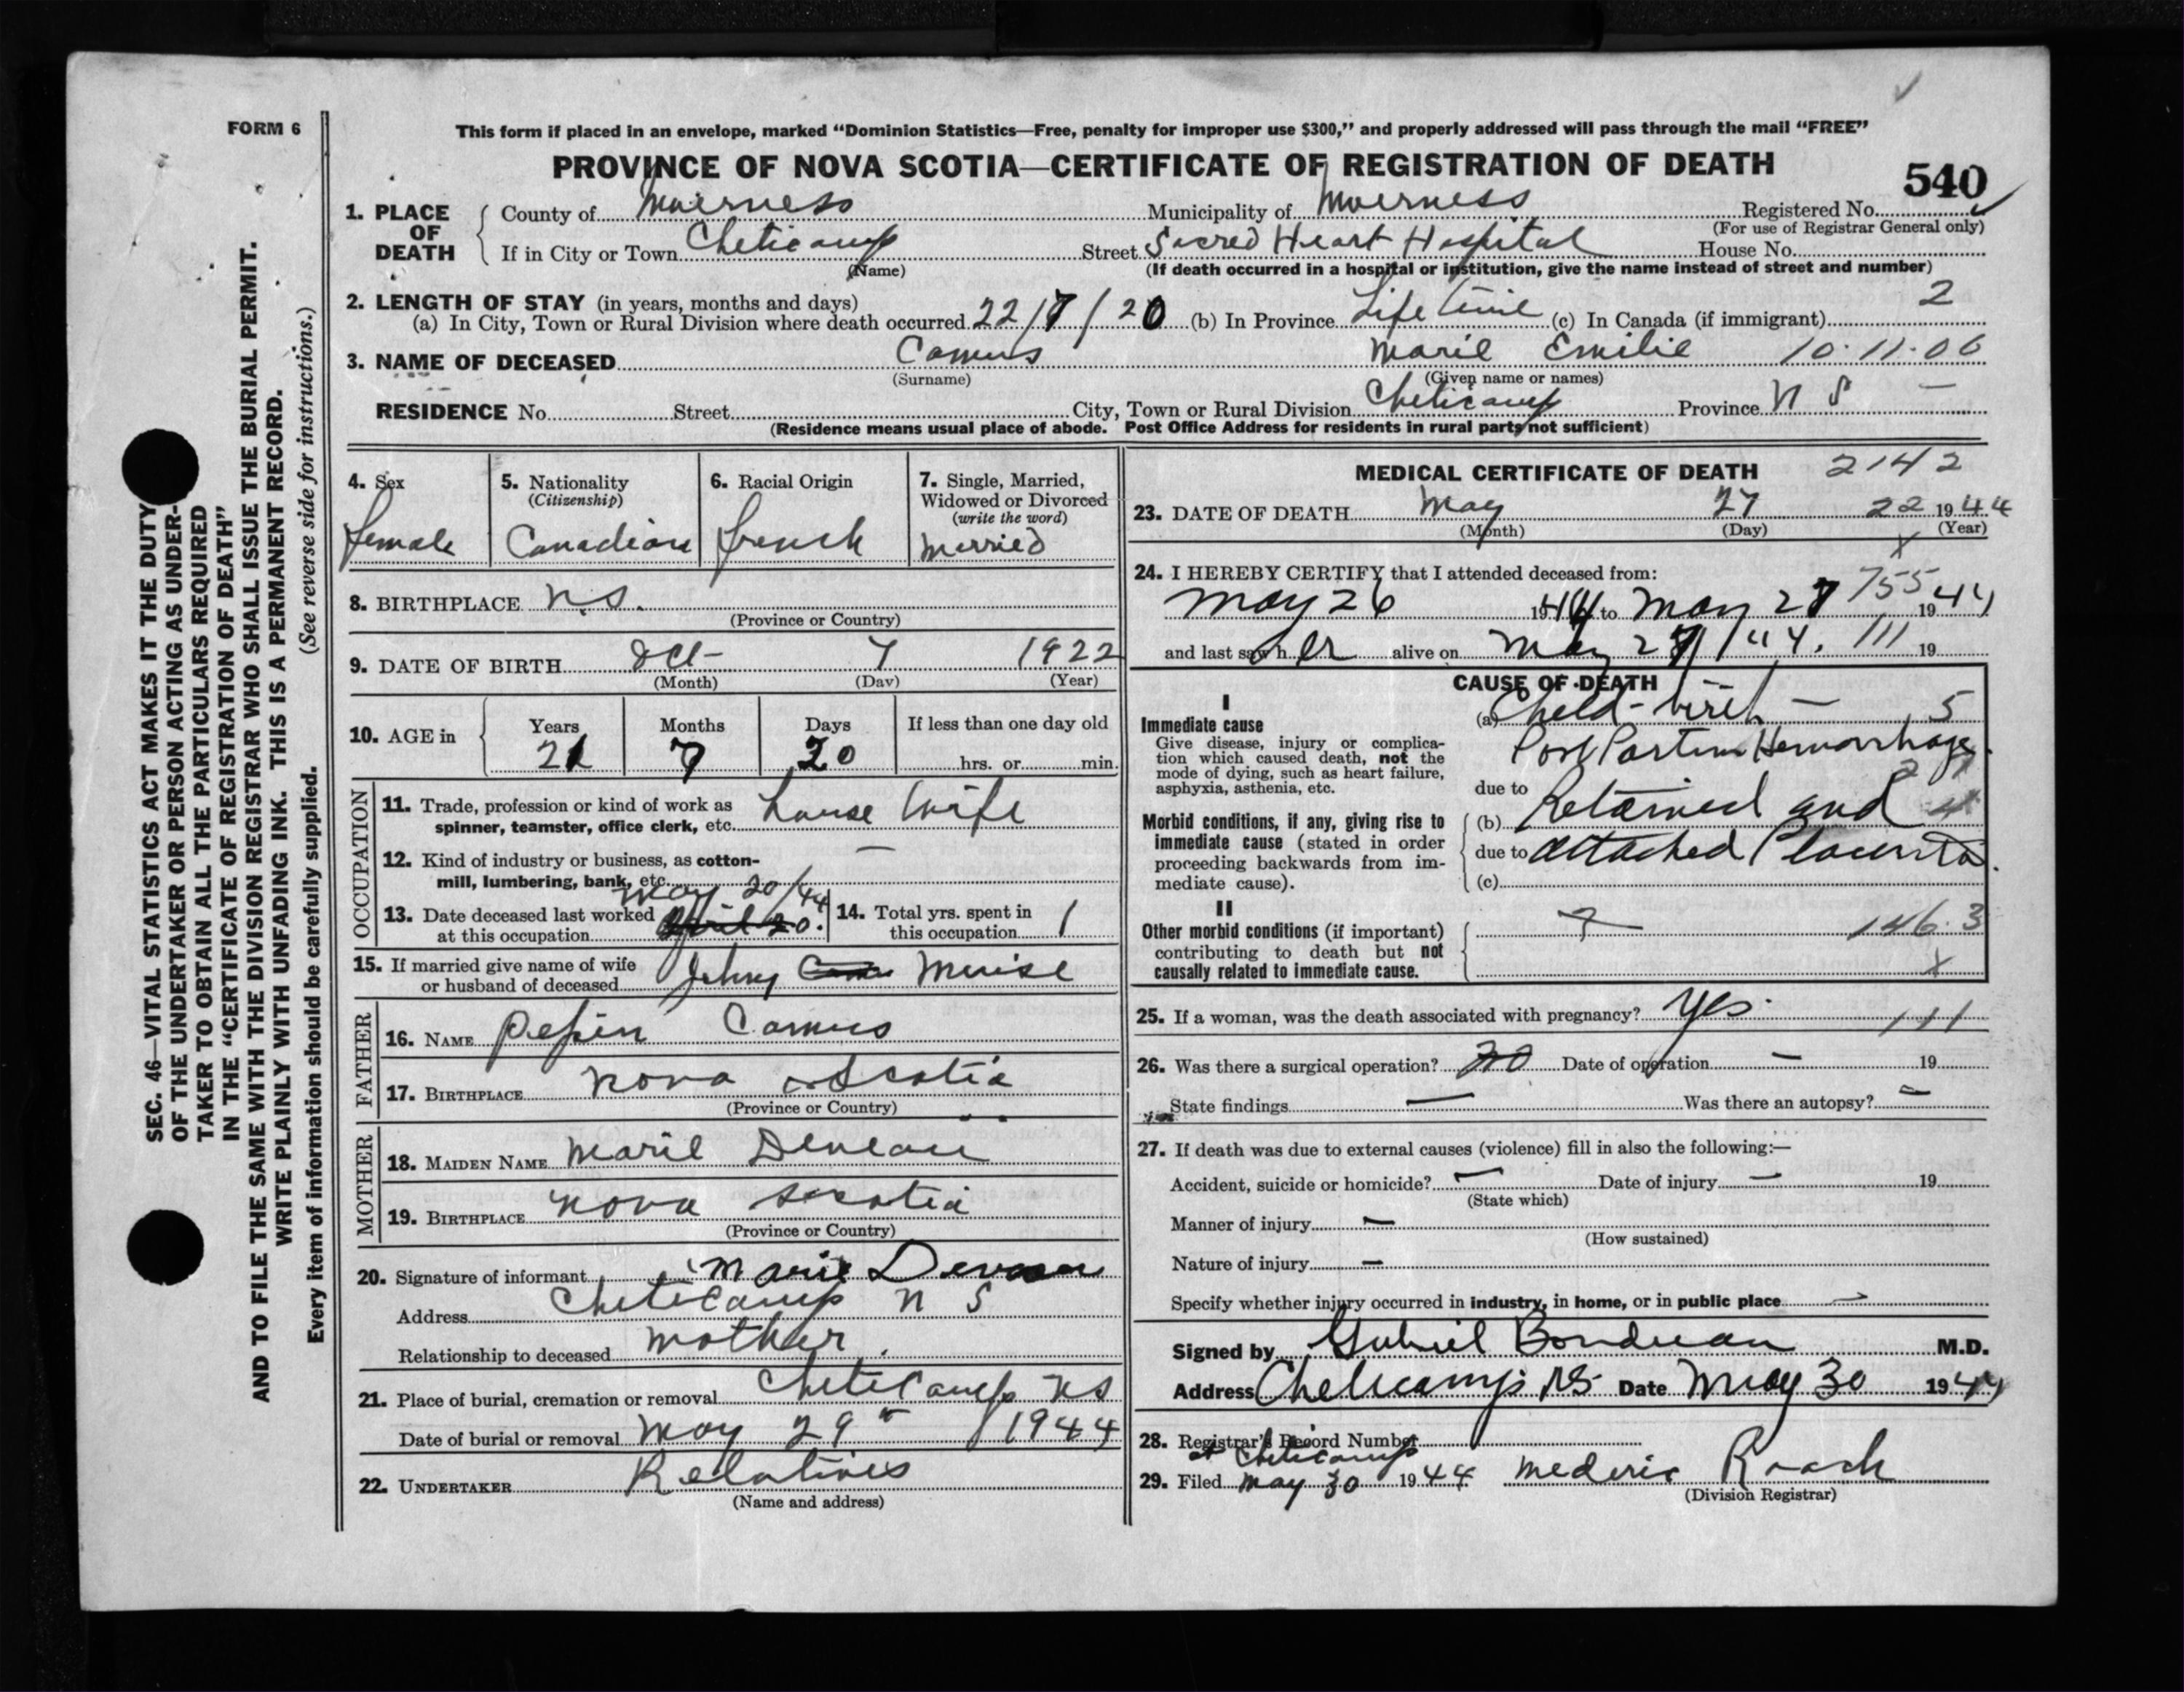 FORM 6
This form if placed in an envelope, marked “Dominion Statistics—Free, penalty for improper use $300,” and properly addressed will pass through the mail “FREE”
PROVINCE OF NOVA SCOTIA—CERTIFICATE OF REGISTRATION OF DEATH
540
SEC. 46—VITAL STATISTICS ACT MAKES IT THE DUTY
OF THE UNDERTAKER OR PERSON ACTING AS UNDER-
TAKER TO OBTAIN ALL THE PARTICULARS REQUIRED
IN THE “CERTIFICATE OF REGISTRATION OF DEATH”
AND TO FILE THE SAME WITH THE DIVISION REGISTRAR WHO SHALL ISSUE THE BURIAL PERMIT.
WRITE PLAINLY WITH UNFADING INK. THIS IS A PERMANENT RECORD.
Every item of information should be carefully supplied. (See reverse side for instructions.)
1. PLACE OF DEATH County of Inverness Municipality of Inverness Registered No.
(For use of Registrar General only)
If in City or Town Cheticamp Street Sacred Heart Hospital House No.
(Name) (If death occurred in a hospital or institution, give the name instead of street and number)
2. LENGTH OF STAY (in years, months and days) 2
(a) In City, Town or Rural Division where death occurred 22/7/20 (b) In Province Life time (c) In Canada (if immigrant)
3. NAME OF DECEASED Camus Marie Emilie 10·11·06
(Surname) (Given name or names)
RESIDENCE No. Street City, Town or Rural Division Cheticamp Province N S —
(Residence means usual place of abode. Post Office Address for residents in rural parts not sufficient)
4. Sex 5. Nationality 6. Racial Origin 7. Single, Married,
(Citizenship) Widowed or Divorced
(write the word)
female Canadian french Married
8. BIRTHPLACE N.S.
(Province or Country)
9. DATE OF BIRTH Oct 7 1922
(Month) (Day) (Year)
10. AGE in Years Months Days If less than one day old
21 7 20 hrs. or min.
OCCUPATION
11. Trade, profession or kind of work as
spinner, teamster, office clerk, etc. House Wife
12. Kind of industry or business, as cotton- —
mill, lumbering, bank, etc.
May 20/44
13. Date deceased last worked
at this occupation April 20.
14. Total yrs. spent in
this occupation 1
15. If married give name of wife
or husband of deceased Johny
FATHER
16. NAME Pepin Camus
17. BIRTHPLACE Nova Scotia
(Province or Country)
MOTHER
18. MAIDEN NAME Marie Deveau
19. BIRTHPLACE Nova Scotia
(Province or Country)
20. Signature of informant Marie Deveau
Address Cheticamp N S
Relationship to deceased mother.
21. Place of burial, cremation or removal Cheticamp NS
Date of burial or removal May 29 1944
22. UNDERTAKER Relatives
(Name and address)
MEDICAL CERTIFICATE OF DEATH 2142
23. DATE OF DEATH May 27 22 1944
(Month) (Day) (Year)
x
24. I HEREBY CERTIFY that I attended deceased from:
May 26 1944 to May 27 755 1944
and last saw her alive on May 27/44. 111 19
CAUSE OF DEATH
I
Immediate cause
Give disease, injury or complica-
tion which caused death, not the
mode of dying, such as heart failure,
asphyxia, asthenia, etc.
(a) Child-birth — 5
Post Partum Hemorrhage.
due to
Morbid conditions, if any, giving rise to
immediate cause (stated in order
proceeding backwards from im-
mediate cause).
(b) Retained and
due to attached Placenta.
(c)
II
Other morbid conditions (if important)
contributing to death but not
causally related to immediate cause.
146.3
x
25. If a woman, was the death associated with pregnancy? Yes. 111
26. Was there a surgical operation? no Date of operation — 19
State findings — Was there an autopsy? —
27. If death was due to external causes (violence) fill in also the following:—
Accident, suicide or homicide? — Date of injury — 19
(State which)
Manner of injury —
(How sustained)
Nature of injury —
Specify whether injury occurred in industry, in home, or in public place —
Signed by Gabriel Boudreau M.D.
Address Cheticamp, NS Date May 30 1944
28. Registrar's Record Number
at Cheticamp
29. Filed May 30 1944 Mederic Roach
(Division Registrar)